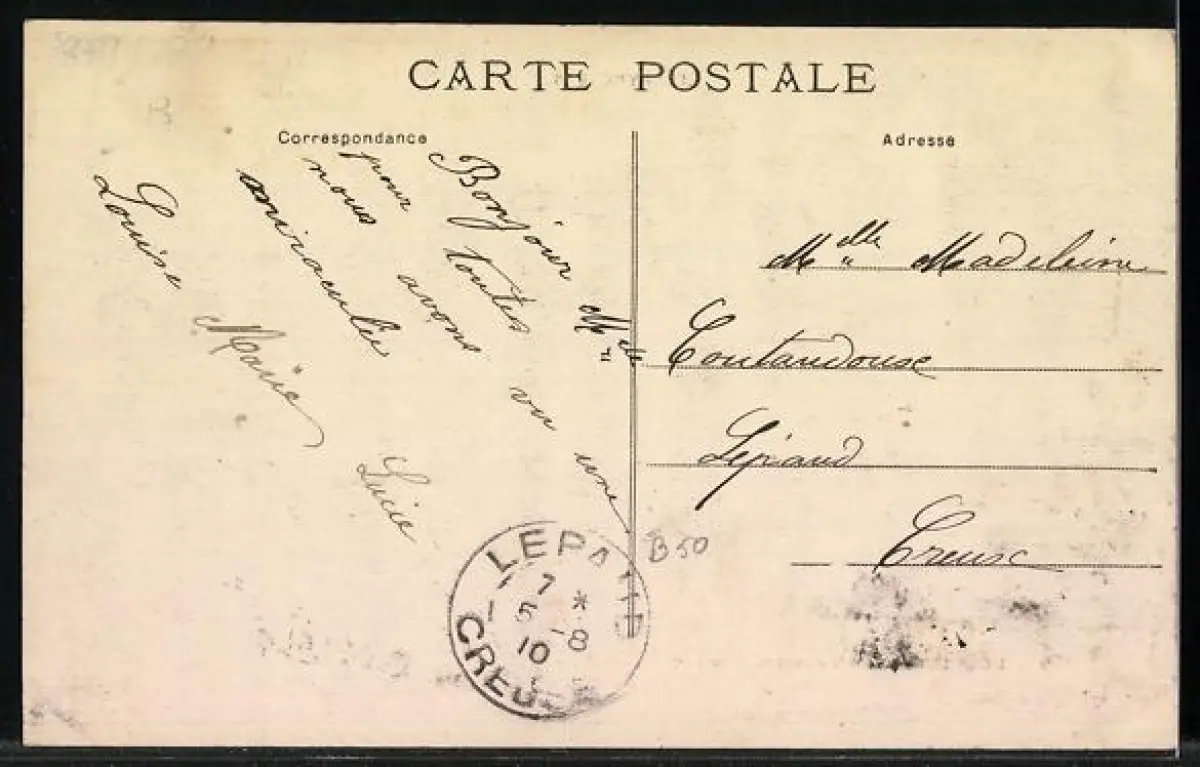 CARTE POSTALE
Correspondance
Adresse
Bonjour Mlle
pour toutes
nous avons vu une
miraculée
Louise Marie Lucie
Mlle Madeleine
Coutandouse
Lépaud
Creuse
B50
LEPAUD
7 *
5-8
10
CREUSE